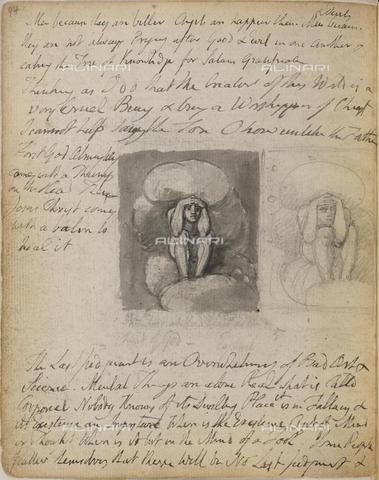 94
Men because they are better Angels are happier than Men because
they are not always Prying after Good & Evil in one Another &
eating the Tree of Knowledge for Satans Gratification
Thinking as I do that the Creator of this World is a
very Cruel Being & being a Worshipper of Christ
I cannot help saying the Son O how unlike the Father
First God Almighty
comes with a Thump
on the Head Then
Jesus Christ comes
with a balm to
heal it
ALINARI
ALINARI
ALINARI
ALINARI
The Last Judgment is an Overwhelming of Bad Art &
Science. Mental Things are alone Real what is Calld
Corporeal Nobody Knows of its Dwelling Place it is in Fallacy &
its Existence an Imposture Where is the Existence Out of Mind
or Thought Where is it but in the Mind of a Fool. Some People
flatter themselves that there will be No Last Judgment &